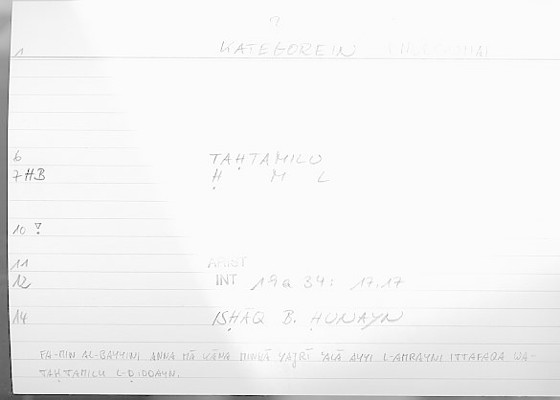 1 KATEGOREIN
6 TAḤTAMILU
7 HB Ḥ M L
10
11 ARIST
12 INT 19a 34: 17.17
14 ISḤĀQ B. ḤUNAYN
FA-MIN AL-BAYYINI ANNA MĀ KĀNA MINHĀ YAǦRĪ ʿALĀ AYYI L-AMRAYNI ITTAFAQA WA-
TAḤTAMILU L-ḌIDDAYN.